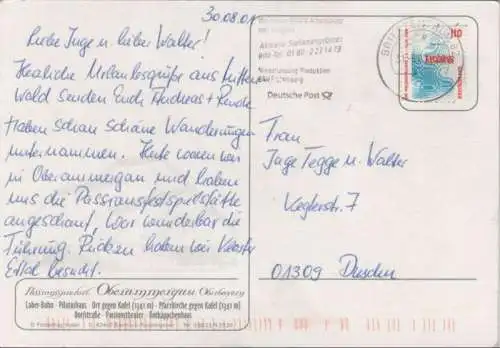 30.08.01
Liebe Inge u. lieber Walter!
Herzliche Urlaubsgrüße aus
Wald senden Euch Andreas +
Haben schon schöne Wanderungen
unternommen. Heute waren wir
in Oberammergau und haben
uns die Passionsfestspielstätte
angeschaut, war wunderbar die
Führung. Rückzu haben wir Kloster
Ettal besucht.
Frau
Inge Tegge u. Walter
Keglerstr. 7
01309 Dresden
Deutsche Post
110
Passionsspieldorf Oberammergau Oberbayern
Laber-Bahn · Pilatushaus · Ort gegen Kofel (1342 m) · Pfarrkirche gegen Kofel (1342 m)
Dorfstraße · Passionstheater · Rotkäppchenhaus